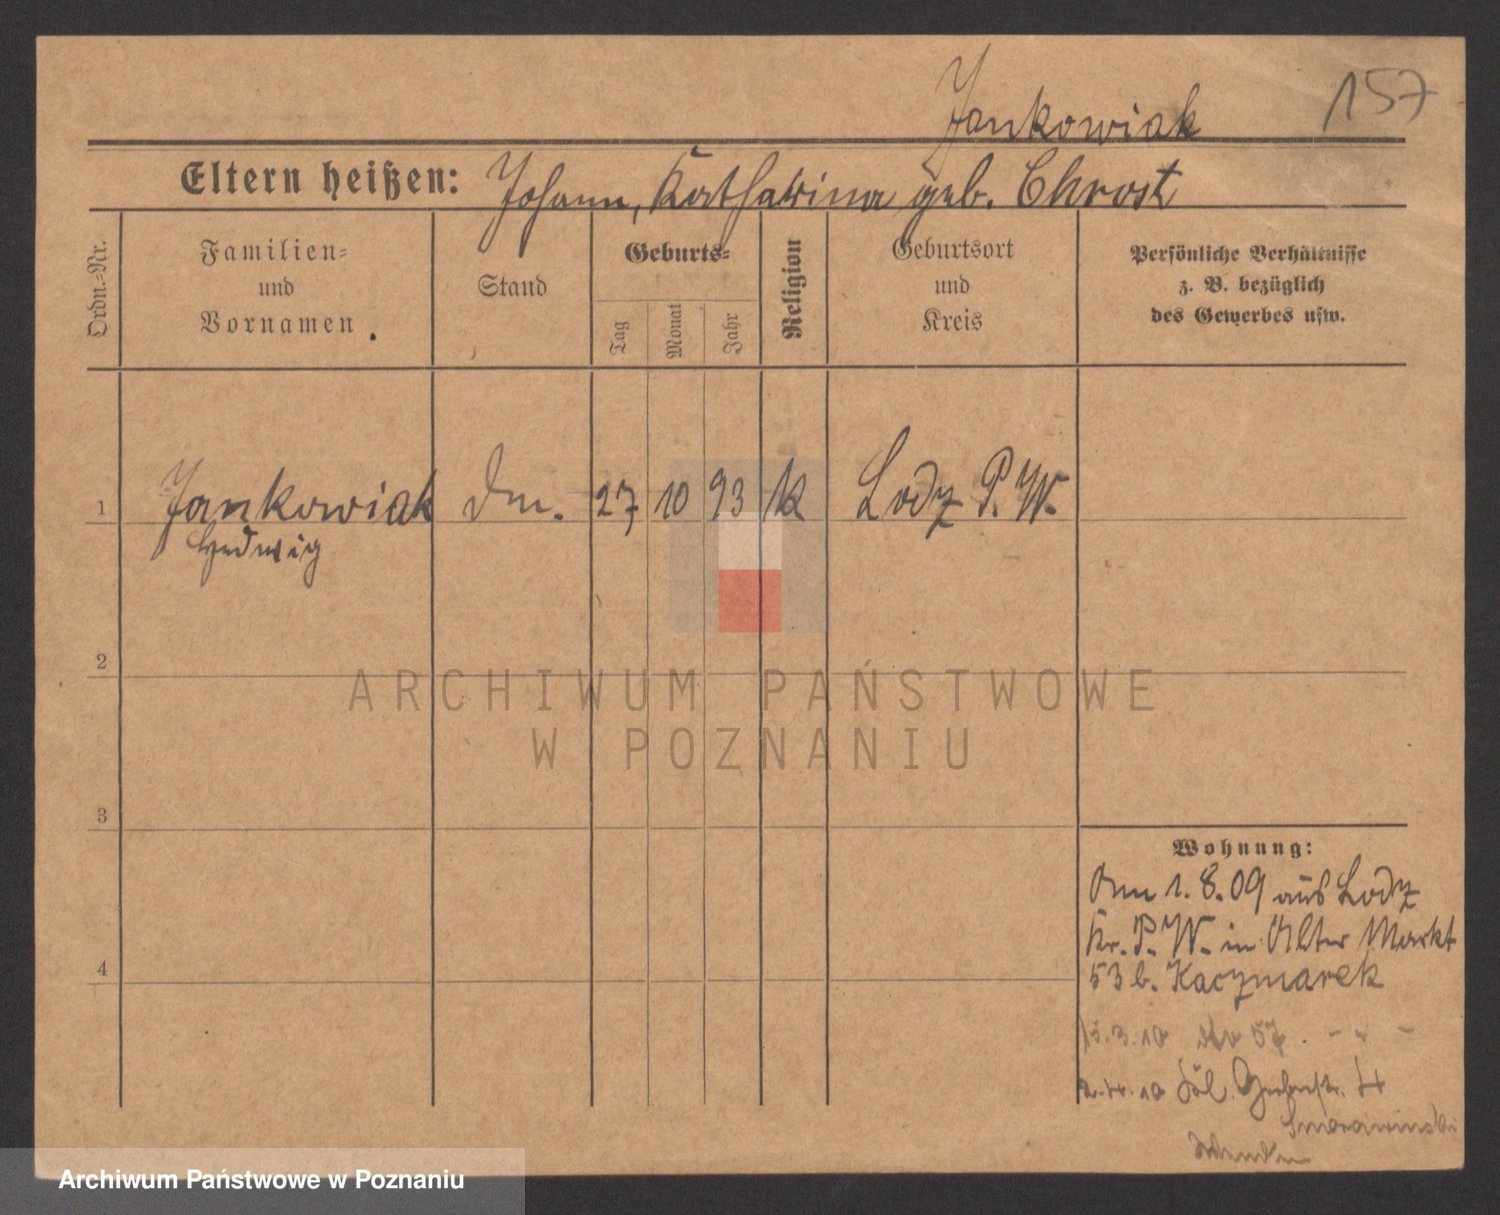 Jankowiak 157
Eltern heißen: Johann, Katharina geb. Chrost
Ordn.-Nr.
Familien-
und
Vornamen
Stand
Geburts-
Tag
Monat
Jahr
Religion
Geburtsort
und
Kreis
Persönliche Verhältnisse
z. B. bezüglich
des Gewerbes usw.
1 Jankowiak Dm. 27 10 93 k Lodz P. W.
Hedwig
2
3
4
Wohnung:
Am 1.8.09 aus Lodz
Kr. P. W. in Alter Markt
53 b. Kaczmarek
15.3.10 57. - " -
2.4.10 4
Smorawinski
ARCHIWUM PAŃSTWOWE
W POZNANIU
Archiwum Państwowe w Poznaniu